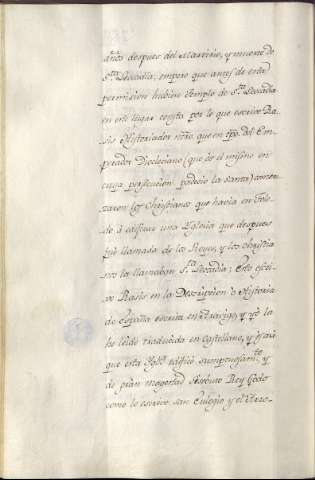 años despues del Martirio, y muerte de
S.ta Leocadia; empero que antes de esta
permision hubiese templo de S.ta Leocadia
en este lugar consta por lo que escrive Ra-
sis Historiador moro, que en tpo. del Em-
perador Diocleciano (que es el mismo en
cuya persecucion padecio la santa) comen-
zaron los Christianos que havia en Tole-
do á edificar una Eglesia que despues
fue llamada de los Reyes, y los christia-
nos la llamaban S.ta Leocadia; Esto escri-
ve Rasis en la Descripcion é Historia
de España escrita en Aravigo, y yo la
he leido traducida en castellano, y
que esta Igl.a edificó sumptuosam.te y
de gran magestad Sisebuto Rey Godo
como lo escrive san Eulogio y el Arzo-